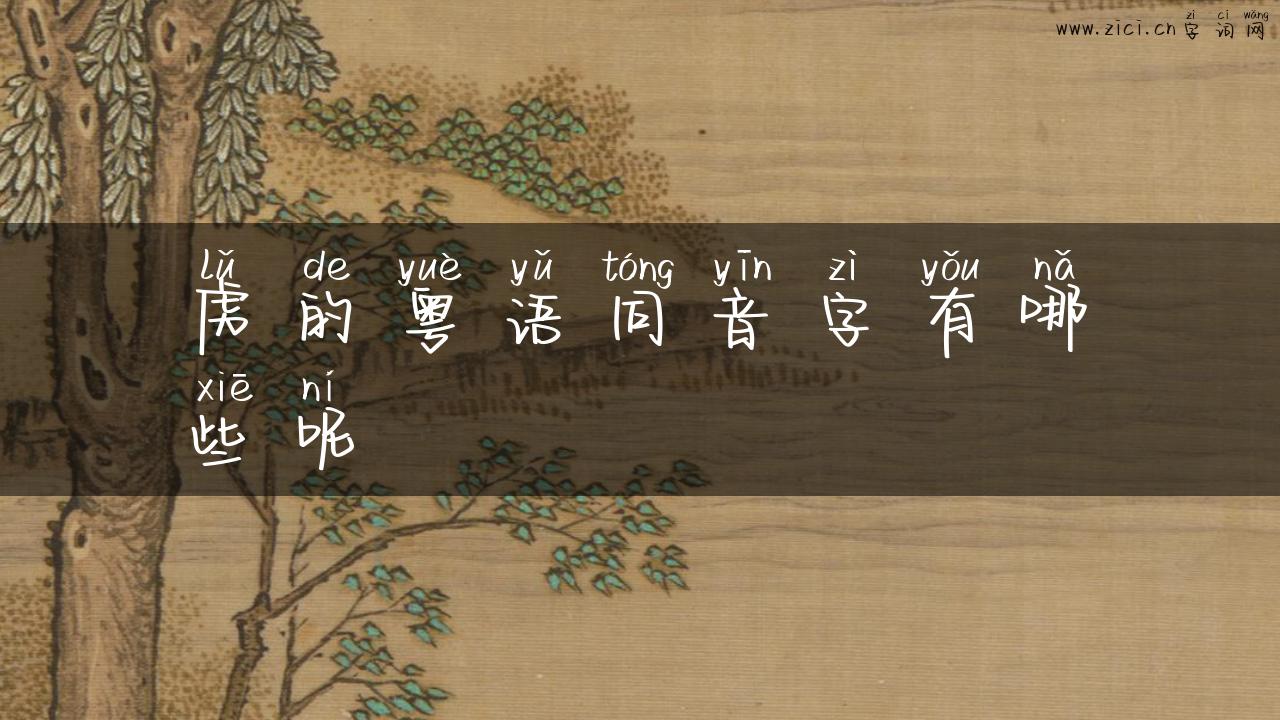 zì cí wǎng
www.zici.cn 字词网
lǔ de yuè yǔ tóng yīn zì yǒu nǎ
虏的粤语同音字有哪
xiē ní
些呢